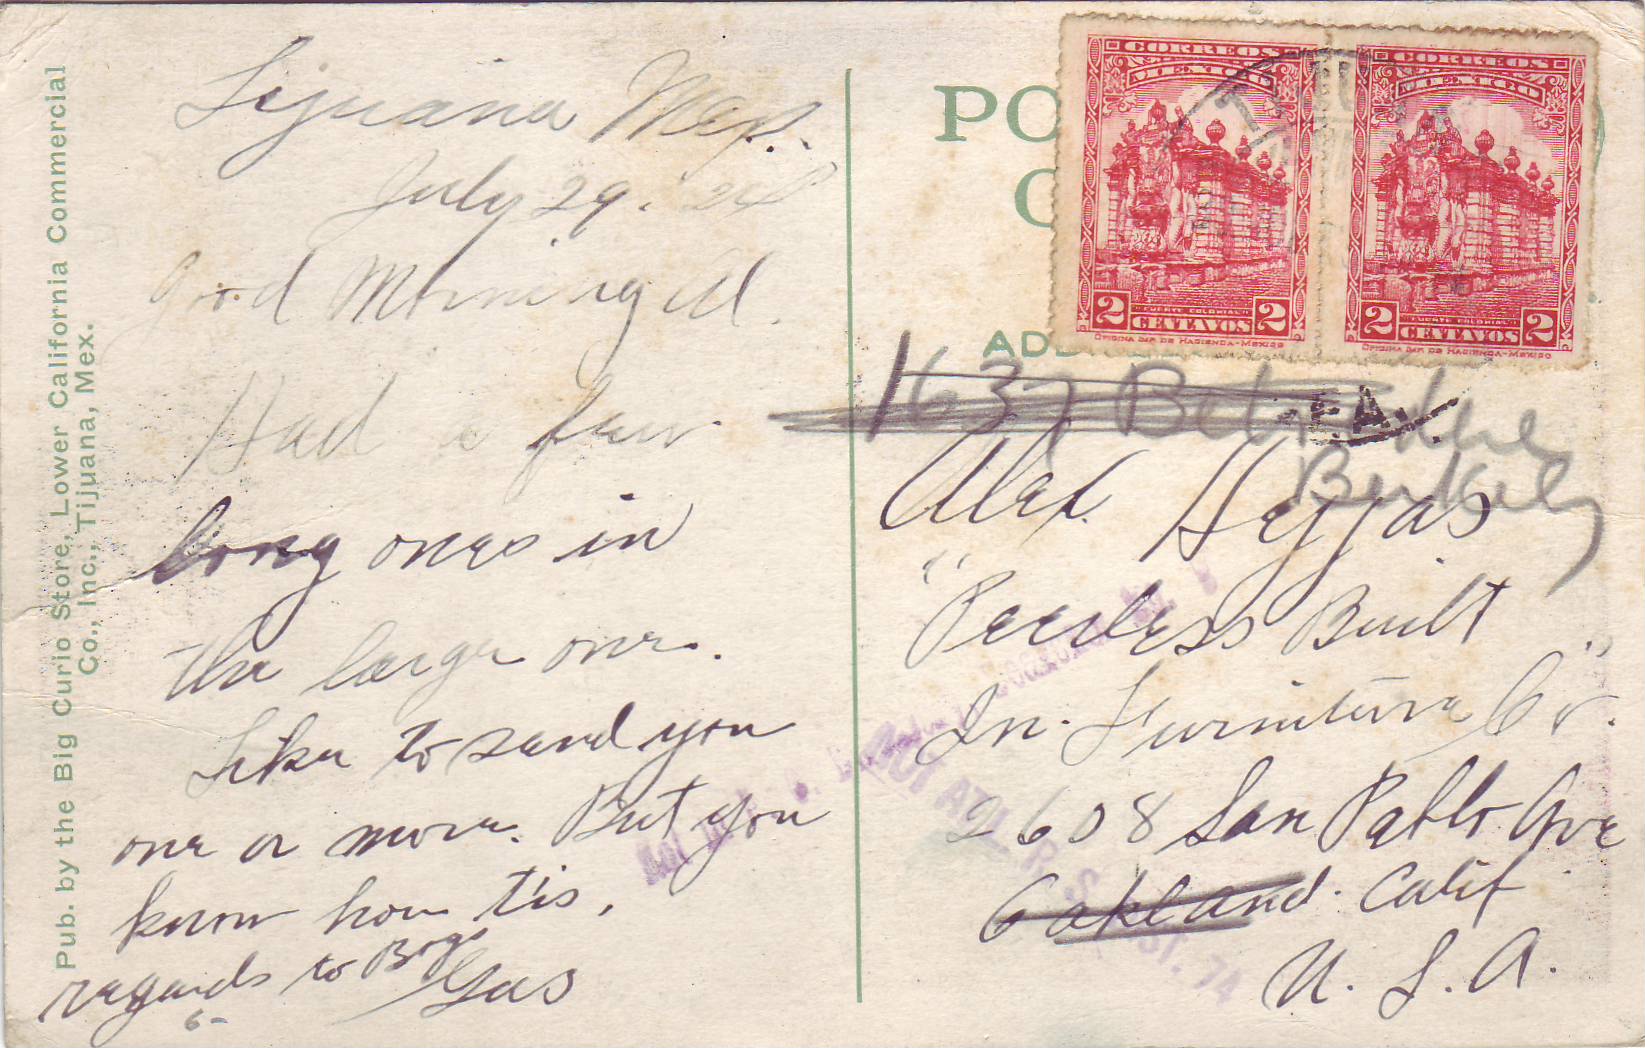 Pub. by the Big Curio Store, Lower California Commercial
Co., Inc., Tijuana, Mex.
Tijuana Mex.
July 29. 24
Good Morning Al.
Had a few
long ones in
the large one.
Like to send you
one or more. But you
know how tis,
regards to Boys
Gus
6-
PO
C
ADD
CORREOS
MEXICO
2 CENTAVOS 2
"FUENTE COLONIAL"
OFICINA IMP. DE HACIENDA-MEXICO
CORREOS
MEXICO
2 CENTAVOS 2
"FUENTE COLONIAL"
OFICINA IMP. DE HACIENDA-MEXICO
1637
Berkeley
Alex. Heyjas
"Peerless Built
In Furniture Co".
2608 San Pablo Ave
Oakland. Calif
U. S. A.